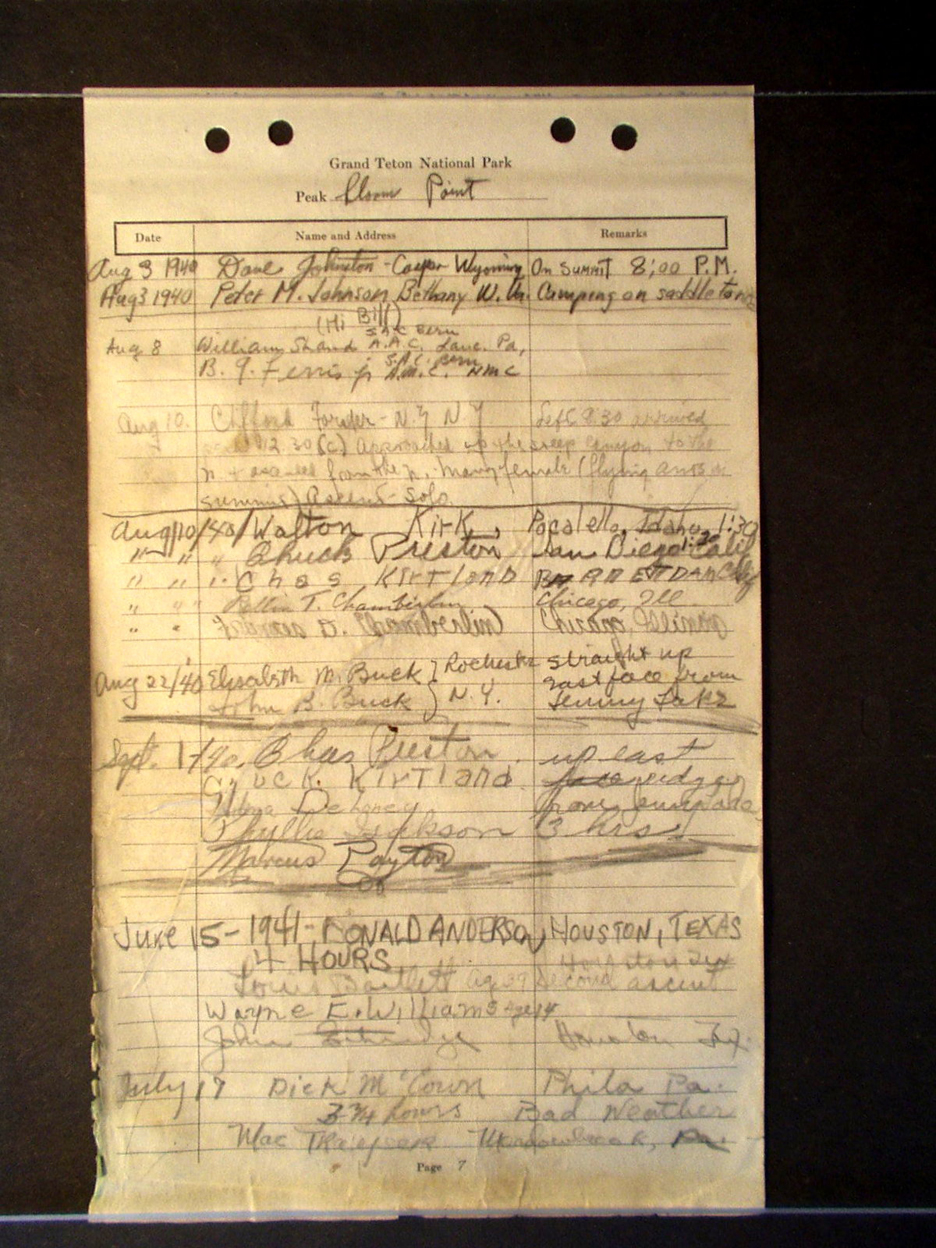 Grand Teton National Park
Peak Point
Date Name and Address Remarks
Aug 3 1940 Dave Johnston - Casper Wyoming On Summit 8:00 P.M.
Aug 3 1940 Peter M. Johnson Bethany W. Va. Camping on saddle
(Hi Bill)
SAC Bern
Aug 8 William Shand A.A.C. Lanc. Pa,
S.A.C. Bern
B. G. Ferris jr A.M.C. NMC
Aug 10. Clifford - N.Y. N.Y Left 8.30 arrived
12 30 (c) Approached up the steep canyon to the
n. + from the n. Many female (flying ants on
summit) Ascent - Solo.
Aug/10/40/ Walton Kirk, Pocatello, Idaho 1:30
" " " Chuck Preston San Diego, Calif
" " " Chas KIRTLAND
" " " T. Chamberlin Chicago, Ill.
" " D. Chamberlin Chicago, Illinois
Aug 22/40 Elisabeth M. Buck } Rochester straight up
east face from
John B. Buck } N.Y. Jenny Lake
Sept. 1/40. Chas Preston up east
C. KIRTLAND face ridge
Delaney from
Phyllis 3 hrs.
Marcus
June 15-1941-RONALD ANDERSON, HOUSTON, TEXAS
4 HOURS
Louis Bartlett age 39 Second ascent
Wayne E. Williams age 14
John Houston Tex.
July 17 Dick McCown Phila Pa.
3 3/4 hours Bad Weather
Mac Pa.
Page 7